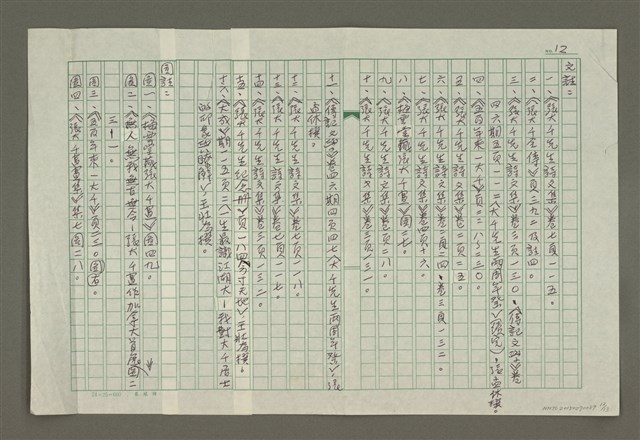 NO. 12
文註：
一、《張大千先生詩文集》卷七頁一一五。
二、《張大千全傳》頁二九二及註四。
三、《張大千先生詩文集》卷三頁一三〇、《傳記文學》卷
四六期五頁一一二《大千先生兩周年祭》(續完)，張目寒撰。
四、《五百年來一大千》頁二八～三〇。
五、《張大千先生詩文集》卷二頁二五。
六、《張大千先生詩文集》卷二頁二四、卷三頁一三二。
七、《張大千先生詩文集》卷四頁十六。
八、《梅雲堂藏張大千畫》圖七。
九、《張大千先生詩文集》卷七頁二八。
十、《張大千先生詩文集》卷三頁一三一。
十一、《傳記文學》卷四六期四頁四七《大千先生兩周年祭》張
撰。
十二、《張大千先生詩文集》卷七頁一一八。
十三、《張大千先生詩文集》卷七頁一一七。
十四、《張大千先生詩文集》卷三頁一三二。
十五、《張大千先生紀念冊》頁一八四《方寸天地》，王壯為撰。
十六、《大成》期一一五頁二《一生最識江湖大－我對大千居士
》，王壯為撰。
圖註：
圖一、《梅雲堂藏張大千畫》圖四九。
圖二、《無人無我無古無今－張大千畫作加拿大首展》圖二
三－一。
圖三、《五百年來一大千》頁三〇圖右。
圖四、《張大千書畫集》集七圖二八。